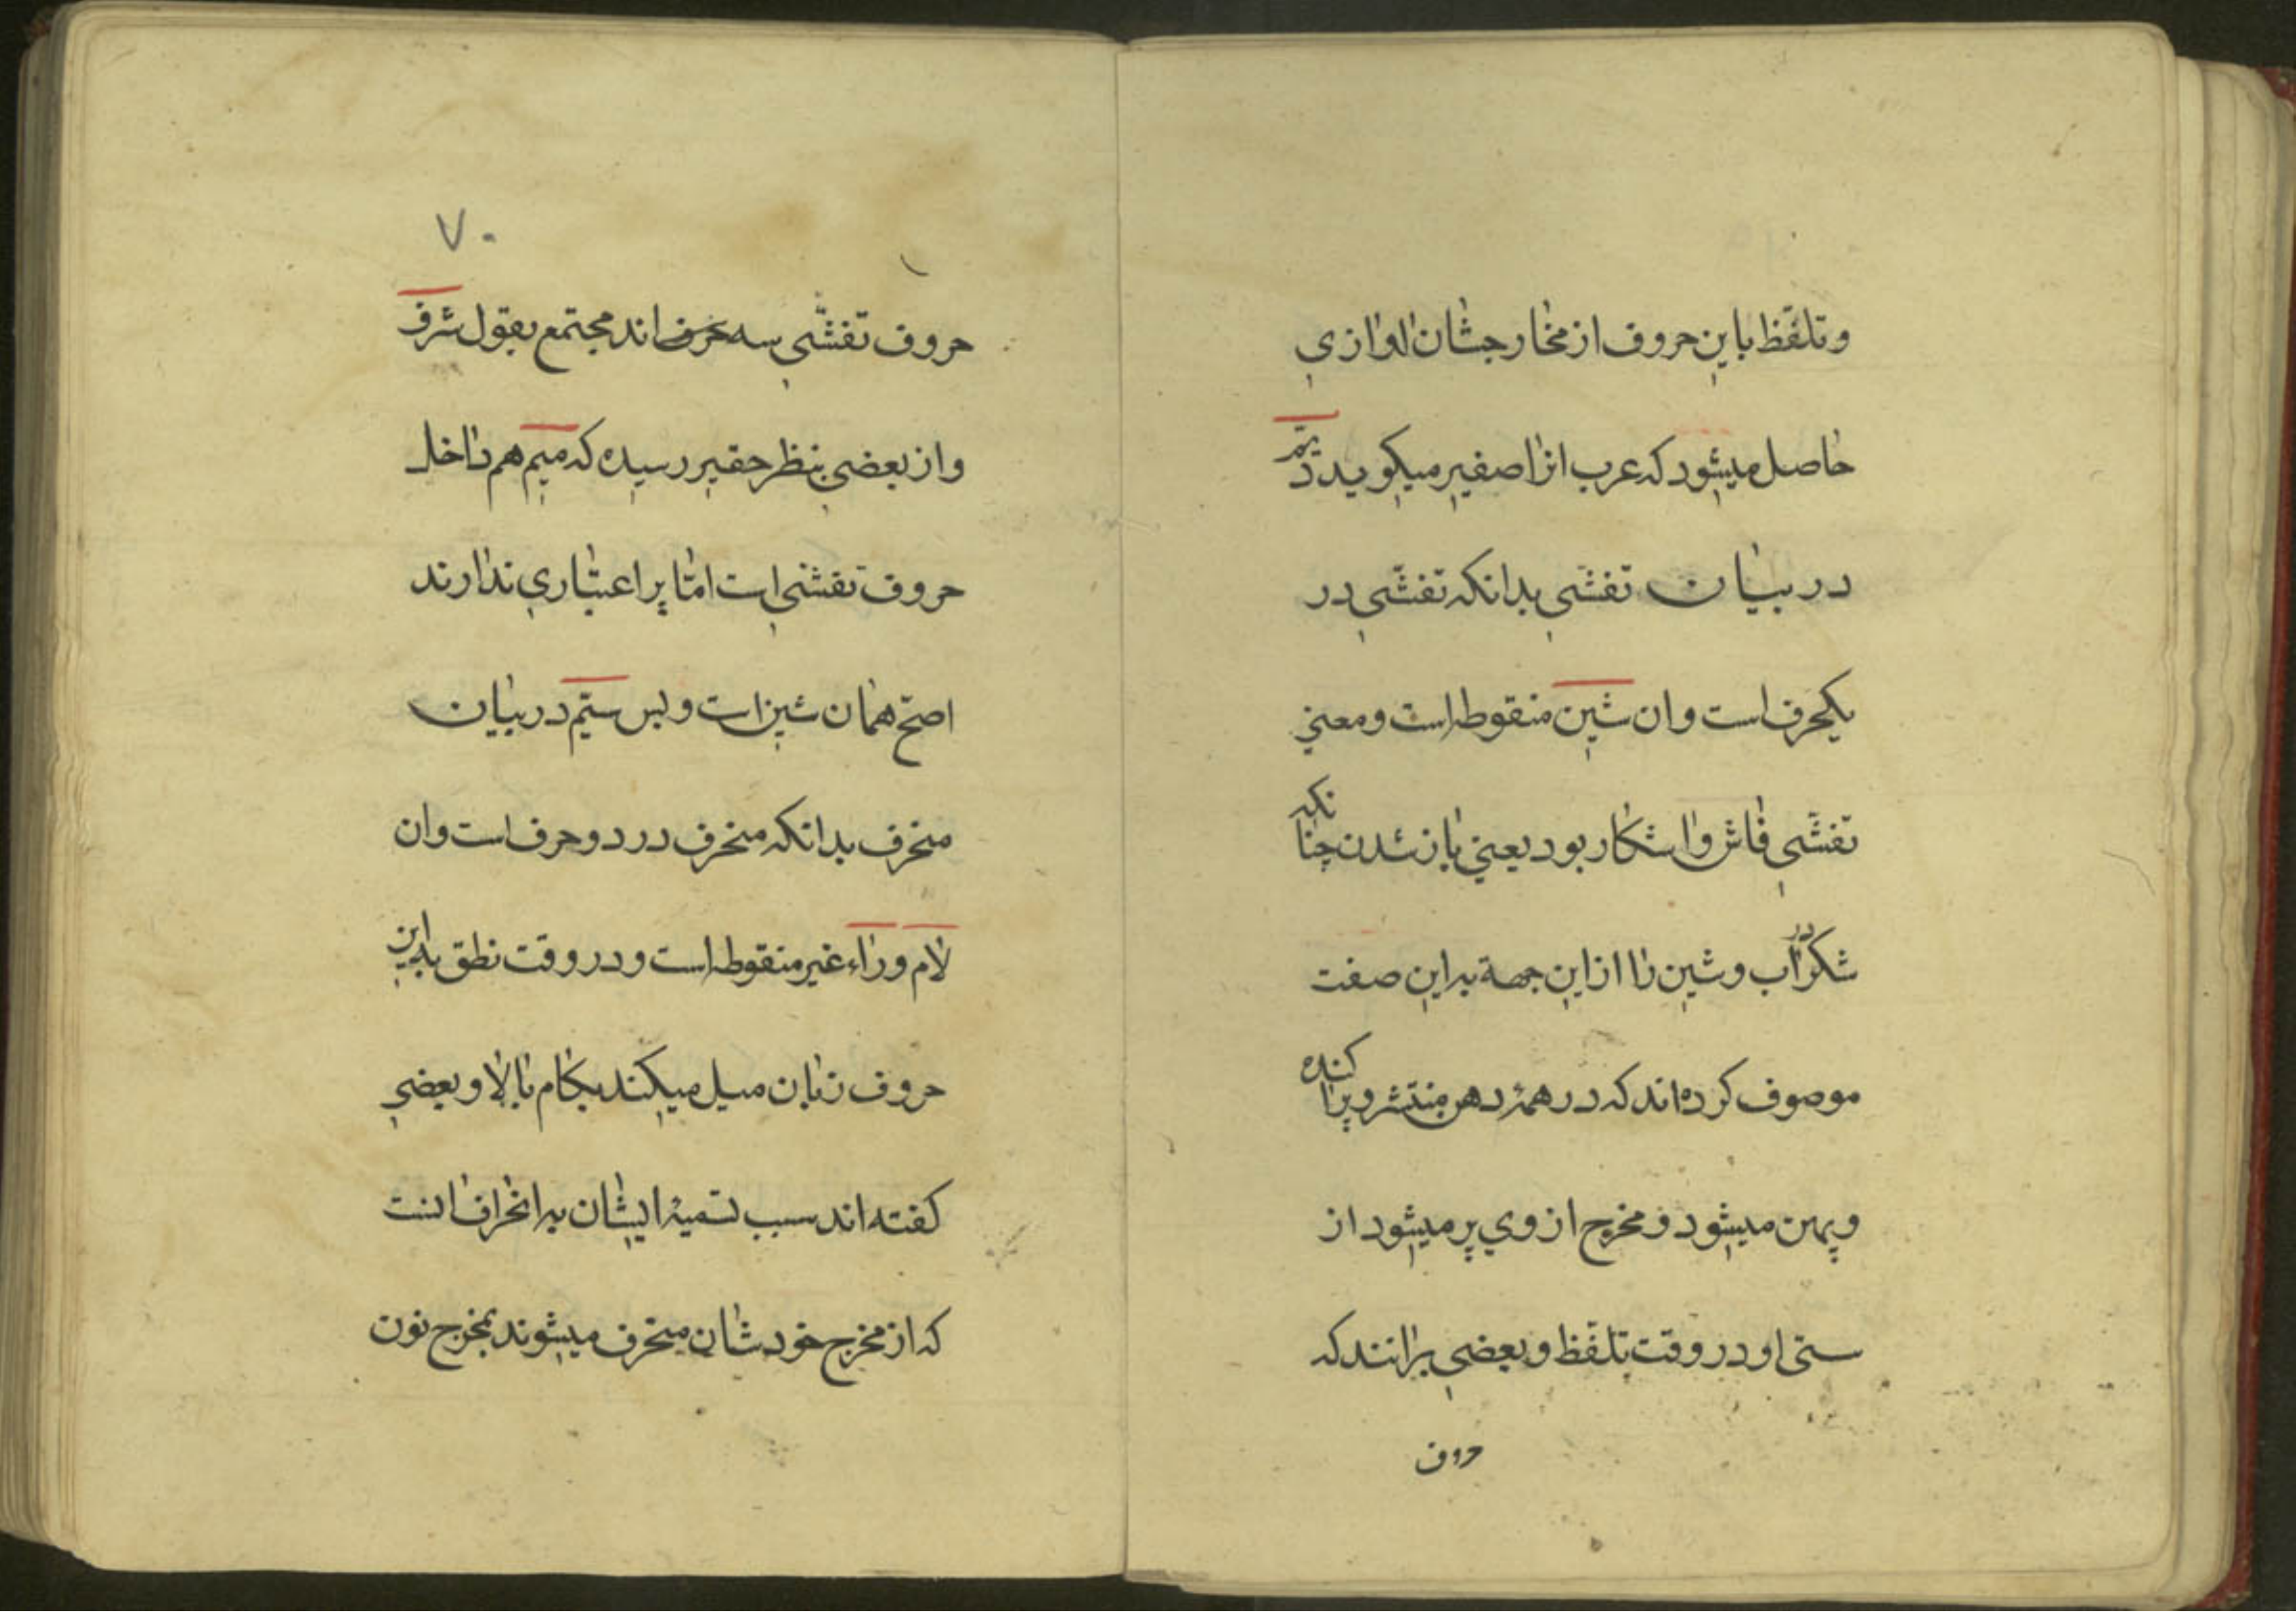 وتلفّظ باین حروف از مخارجشان اوازی
حاصل میشود که عرب انرا صفیر میکوید
در بیان تفشّی بدانکه تفشّی در
یکحرف است وان شین منقوطه است ومعنی
تفشّی فاش واشکار بود یعنی باز شدن چنانکه
شکر در آب وشین را از این جهة به این صفت
موصوف کرده‌اند که در همهٔ دهن منتشر وپراکنده
وپهن میشود ومخرج از وی پر میشود از
ستی او در وقت تلفّظ وبعضی برانند که
حروف
۷۰
حروف تفشّی سه حرف اند مجتمع بقول شرف
واز بعضی بنظر حقیر رسیده که میم هم داخل
حروف تفشی است امّا پر اعتباری ندارند
اصحّ همان شین است وبس ستیّم در بیان
منحرف بدانکه منحرف در دو حرف است وان
لام وراء غیر منقوطه است ودر وقت نطق باین
حروف زبان میل میکند بکام بالا وبعضی
کفته اند سبب تسمیهٔ ایشان به انحراف انست
که از مخرج خودشان منحرف میشوند بمخرج نون